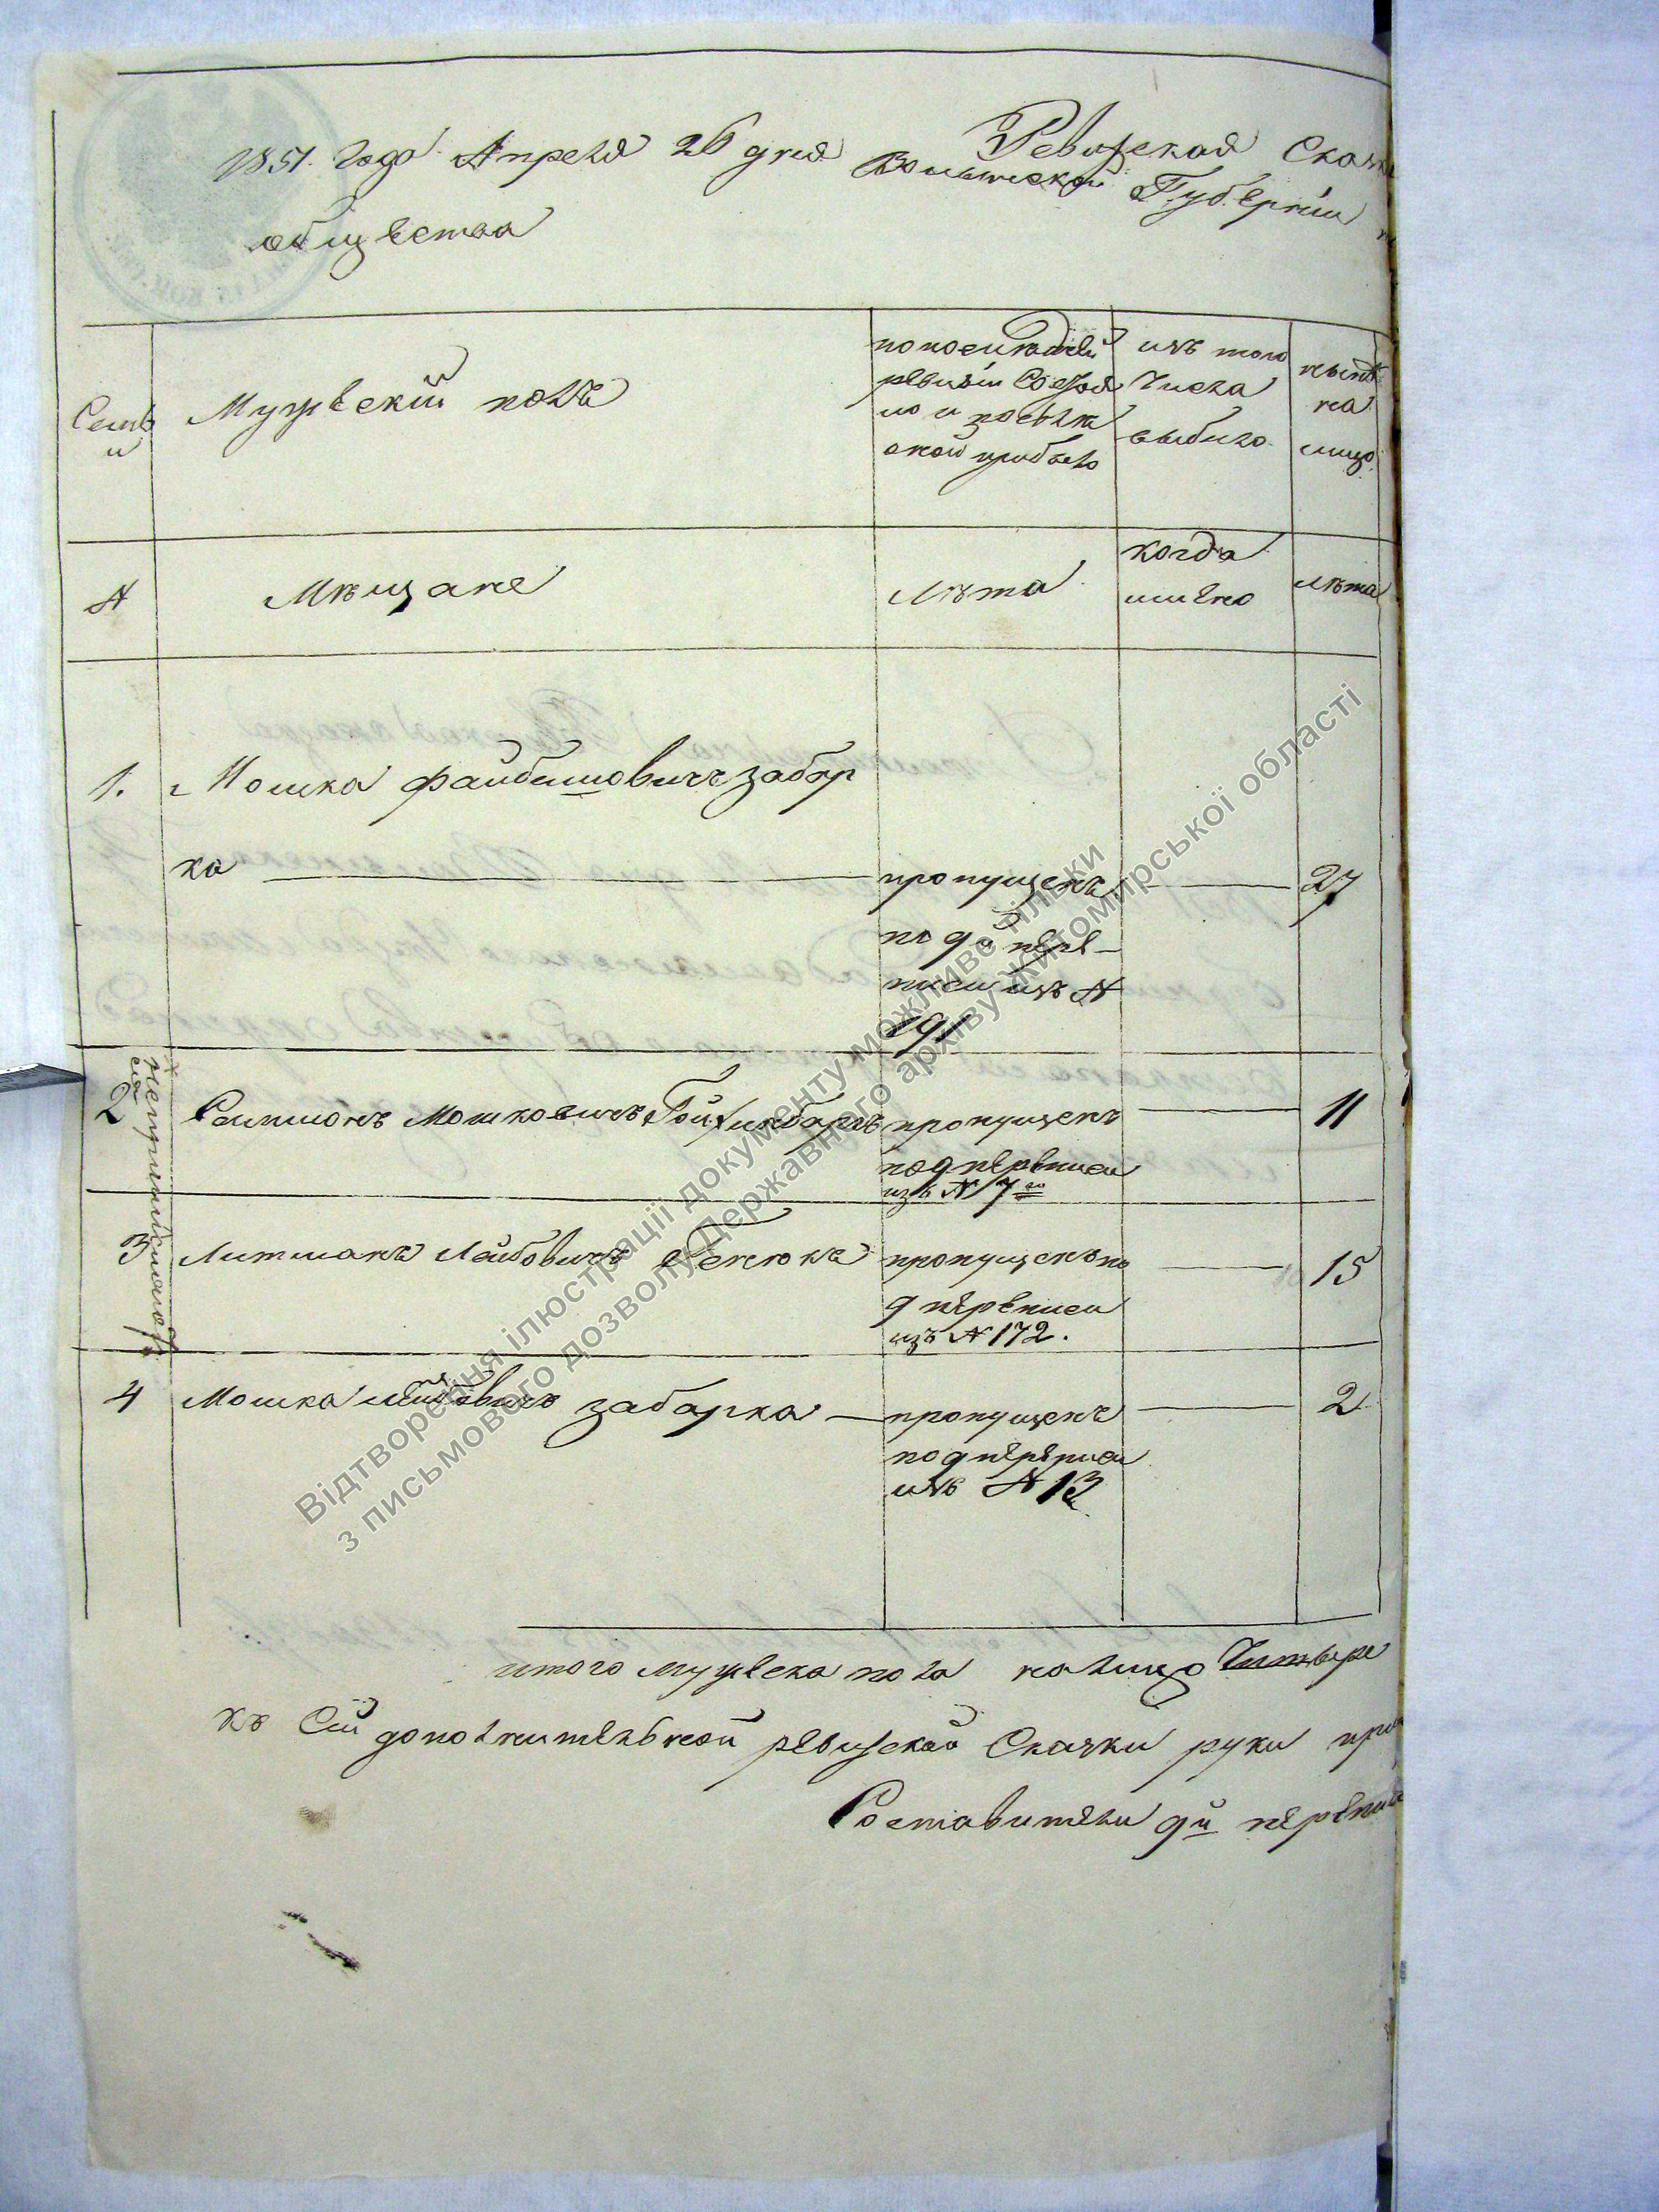 Ревизская Сказк
1851. Года Апреля 26 дня Волынской Губернiи
общества
Семьи
Мужескiй полъ
по последней ревизiи Состояло и после оной прибыло
изъ того числа выбыло
ныне на лицо
№
Мѣщане
Лѣта
когда имѣно
лѣта
1. Мошка Файбишовичъ Забар
ка
пропущенъ
по 9й пере-
писи изъ №
191
27
2 Самшонъ Мошковичъ пропущенъ 11
под переписи
изъ № 7го
3 Литманъ Лейбовичъ пропущенъ по 15
9 переписи
изъ № 172.
4 Мошка Забарка пропущенъ 2
по 9 переписи
изъ № 13
итого мужеска пола на лицо Четыре
къ Сей дополнительной ревизской Сказки руки при
Составители 9й переписи
Відтворення ілюстрації документу можливе тільки
з письмового дозволу Державного архіву Житомирської області